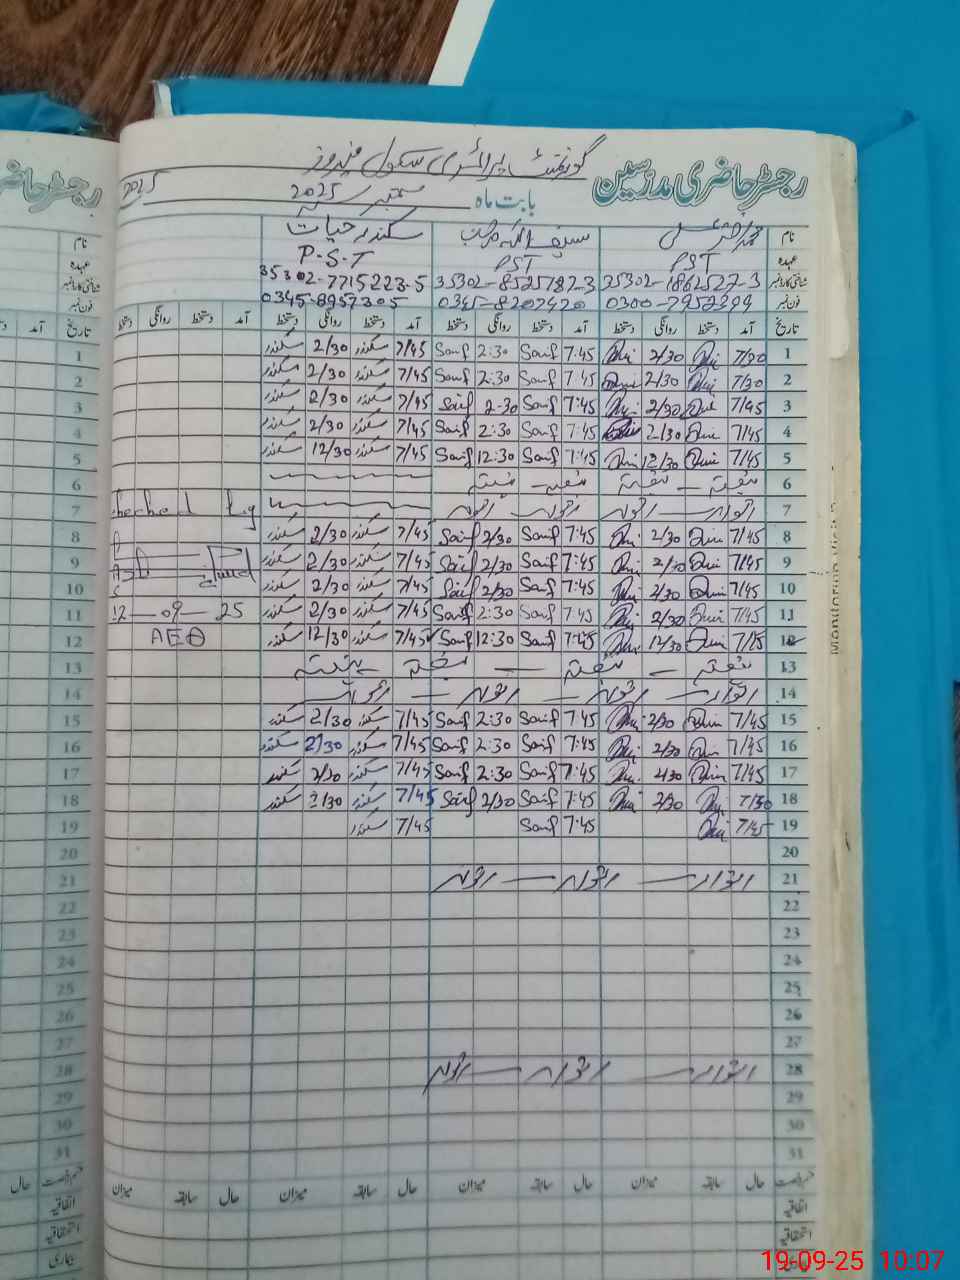 رجسٹر حاضری مدرسین گورنمنٹ پرائمری سکول
بابت ماہ ستمبر 2025 2025
نام سکندر حیات
عہدہ PST PST P-S-T
شناختی کارڈ نمبر 35302-1862522-3 35302-8525782-3 35302-7715223-5
فون نمبر 0300-7952399 0345-8207420 0345-8957305
تاریخ آمد دستخط روانگی دستخط آمد دستخط روانگی دستخط آمد دستخط روانگی دستخط آمد دستخط روانگی دستخط
1 7/30 2/30 7:45 Saif 2:30 Saif 7/45 سکندر 2/30 سکندر
2 7/30 2/30 7:45 Saif 2:30 Saif 7/45 سکندر 2/30 سکندر
3 7/45 2/30 7:45 Saif 2-30 Saif 7/45 سکندر 2/30 سکندر
4 7/45 2/30 7:45 Saif 2:30 Saif 7/45 سکندر 2/30 سکندر
5 7/45 12/30 7:45 Saif 12:30 Saif 7/45 سکندر 12/30 سکندر
6 ہفتہ — ہفتہ ہفتہ — ہفتہ
7 اتوار — اتوار اتوار — اتوار
8 7/45 2/30 7:45 Saif 2/30 Saif 7/45 سکندر 2/30 سکندر
9 7/45 2/30 7:45 Saif 2/30 Saif 7/45 سکندر 2/30 سکندر
10 7/45 2/30 7:45 Saif 2/30 Saif 7/45 سکندر 2/30 سکندر
11 7/45 2/30 7:45 Saif 2:30 Saif 7/45 سکندر 2/30 سکندر
12 7/45 12/30 7:45 Saif 12:30 Saif 7/45 سکندر 12/30 سکندر
checked by
12-09-25
AEO
13 ہفتہ — ہفتہ — ہفتہ ہفتہ
14 اتوار — اتوار — اتوار — اتوار
15 7/45 2/30 7:45 Saif 2:30 Saif 7/45 سکندر 2/30 سکندر
16 7/45 2/30 7:45 Saif 2:30 Saif 7/45 سکندر 2/30 سکندر
17 7/45 2/30 7:45 Saif 2:30 Saif 7/45 سکندر 2/30 سکندر
18 7/30 2/30 7:45 Saif 2/30 Saif 7/45 سکندر 2/30 سکندر
19 7/45 7:45 Saif 7/45 سکندر
20
21 اتوار — اتوار — اتوار
22
23
24
25
26
27
28 اتوار — اتوار — اتوار
29
30
31
حال سابقہ میزان حال سابقہ میزان حال سابقہ میزان حال سابقہ میزان
اتفاقیہ
استحقاقیہ
بیماری
19-09-25 10:07